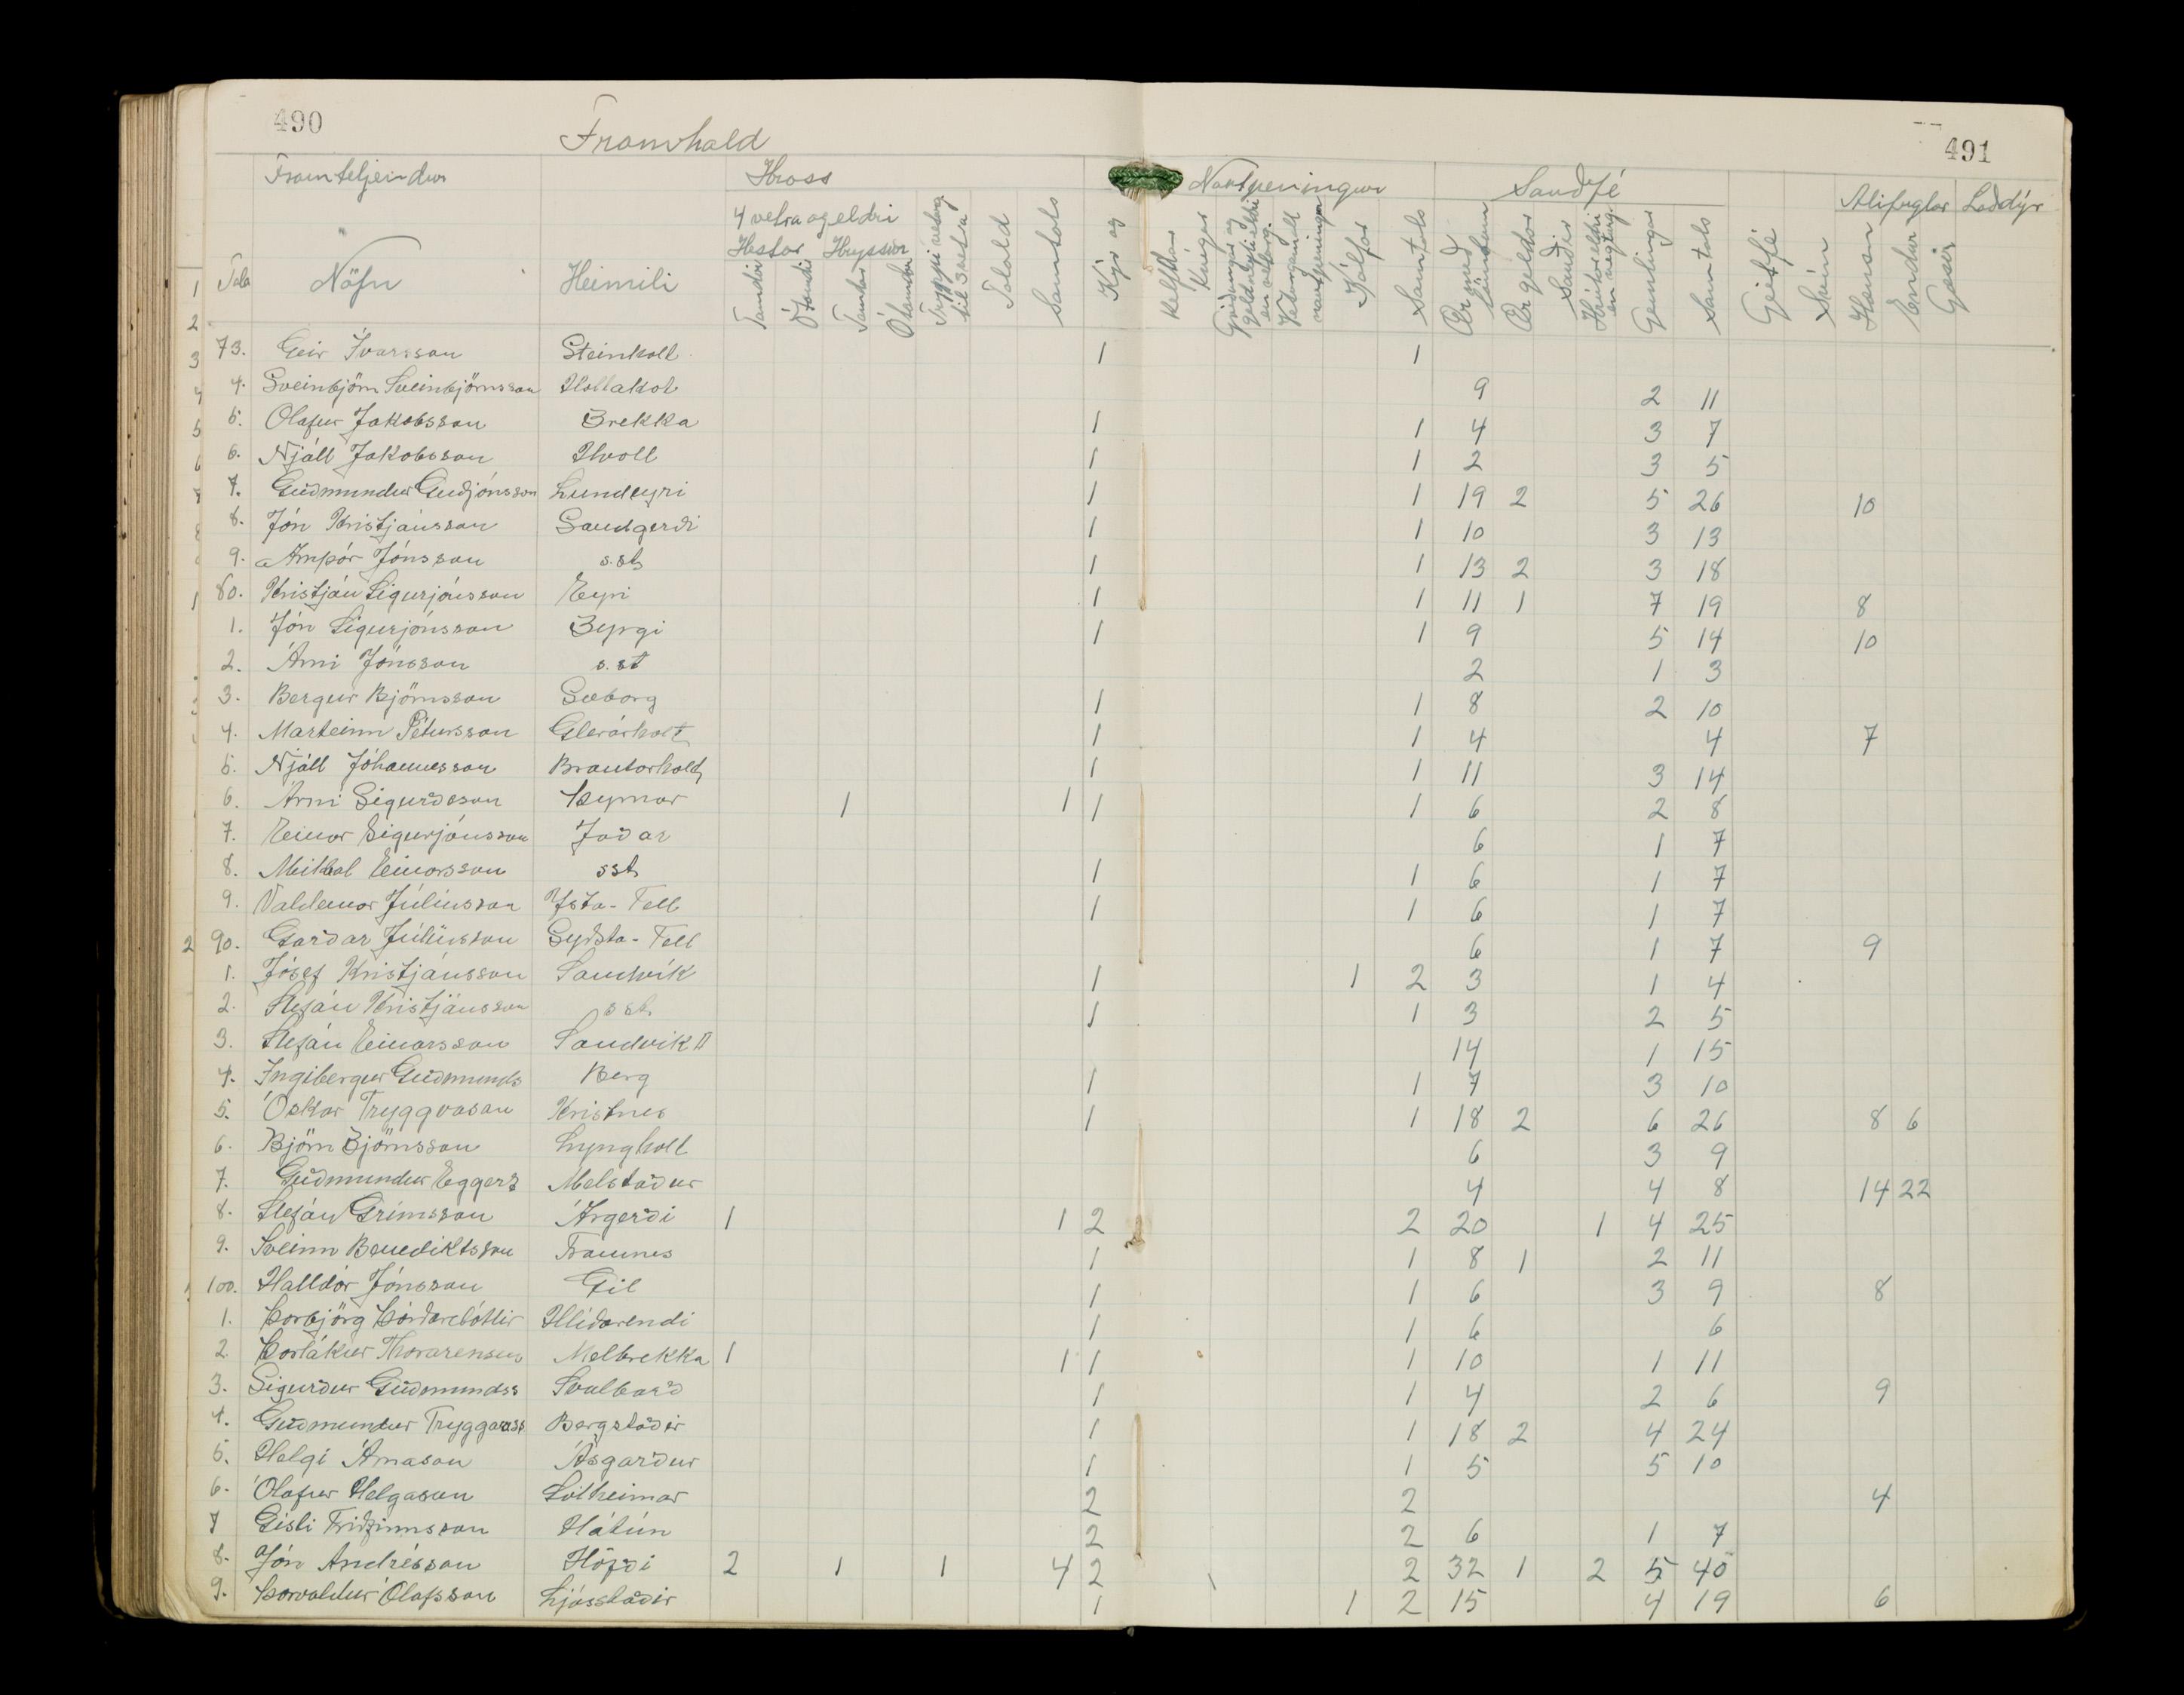 490
Framhald
491
Framteljendur Hross Nautpeningur Sauðfé Alifuglar Loðdýr
4 vetra og eldri
Hestar Hryssur
Tala Nöfn Heimili Tamdir Ótamdir Tamdar Ótamdar Tryppi veturg. til 3 vetra Folald Samtals Kýr og kelfdar Kvígur Veturgamall nautpeningur Kálfar Samtals Ær með lömbum Ær geldar Sauðir Hrútar eldri en vegturg. Gemlingar Samtals Geitfé Svín Hænsn Endur Gæsir
73. Geir Ívarsson Steinholt 1 1
4. Sveinbjörn Sveinbjörnsson Holtakot 9 2 11
5. Ólafur Jakobsson Brekka 1 1 4 3 7
6. Njáll Jakobsson Hvoll 1 1 2 3 5
7. Guðmundur Guðjónsson Lundeyri 1 1 19 2 5 26 10
8. Jón Kristjánsson Sandgerði 1 1 10 3 13
9. Arnþór Jónsson s.st 1 1 13 2 3 18
80. Kristján Sigurjónsson Eyri 1 1 11 1 7 19 8
1. Jón Sigurjónsson Byrgi 1 1 9 5 14 10
2. Árni Jónsson s.st 2 1 3
3. Bergur Björnsson Sæborg 1 1 8 2 10
4. Marteinn Pétursson Glerárholt 1 1 4 4 7
5. Njáll Jóhannesson Brautarholt 1 1 11 3 14
6. Árni Sigurðsson Þyrnar 1 1 1 1 6 2 8
7. Einar Sigurjónsson Jaðar 6 1 7
8. Mikael Einarsson sst 1 1 6 1 7
9. Valdemar Júlíusson Ysta-Fell 1 1 6 1 7
90. Garðar Júlíusson Syðsta-Fell 6 1 7 9
1. Jósef Kristjánsson Sandvík 1 1 2 3 1 4
2. Stefán Kristjánsson sst 1 1 3 2 5
3. Stefán Einarsson Sandvík II 14 1 15
4. Ingibergur Guðmunds Berg 1 1 7 3 10
5. Óskar Tryggvason Kristnes 1 1 18 2 6 26 8 6
6. Björn Björnsson Lyngholt 6 3 9
7. Guðmundur Eggerz Melstaður 4 4 8 14 22
8. Stefán Grímsson Árgerði 1 1 2 2 20 1 4 25
9. Sveinn Benediktsson Framnes 1 1 8 1 2 11
100. Halldór Jónsson Gil 1 1 6 3 9 8
1. Þorbjörg Þórðardóttir Hlíðarendi 1 1 6 6
2 Þorlákur Thorarensen Melbrekka 1 1 1 1 10 1 11
3. Sigurður Guðmundss Svalbarð 1 1 4 2 6 9
4. Guðmundur Tryggvass Bergstaðir 1 1 18 2 4 24
5. Helgi Árnason Ásgarður 1 1 5 5 10
6. Ólafur Helgason Sólheimar 2 2 4
7 Gísli Friðfinnsson Hátún 2 2 6 1 7
8. Jón Andrésson Höfði 2 1 1 4 2 2 32 1 2 5 40
9. Þorvaldur Ólafsson Ljósstaðir 1 1 2 15 4 19 6